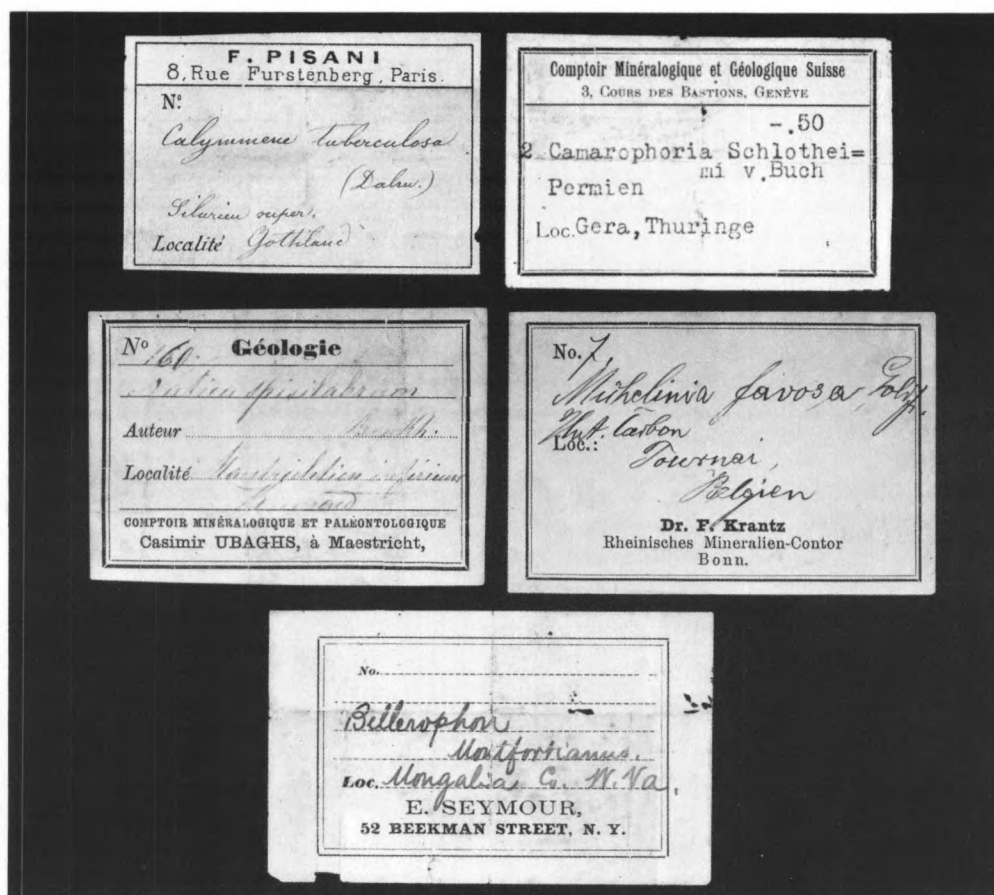 F. PISANI
8, Rue Furstenberg, Paris.
N°
Calymmene tuberculosa
(Dalm.)
Silurien super.
Localité Gothland
Comptoir Minéralogique et Géologique Suisse
3, COURS DES BASTIONS, GENÈVE
-.50
2 Camarophoria Schlothei=
mi v.Buch
Permien
Loc. Gera, Thuringe
N° 160. Géologie
Auteur
Localité
COMPTOIR MINÉRALOGIQUE ET PALÉONTOLOGIQUE
Casimir UBAGHS, à Maestricht,
No. 7,
Michelinia favosa Goldf.
Unt. Carbon
Loc.:
Tournai,
Belgien
Dr. F. Krantz
Rheinisches Mineralien-Contor
Bonn.
No.
Bellerophon
Montfortianus.
Loc. Mongalia Co. W. Va.
E. SEYMOUR,
52 BEEKMAN STREET, N. Y.